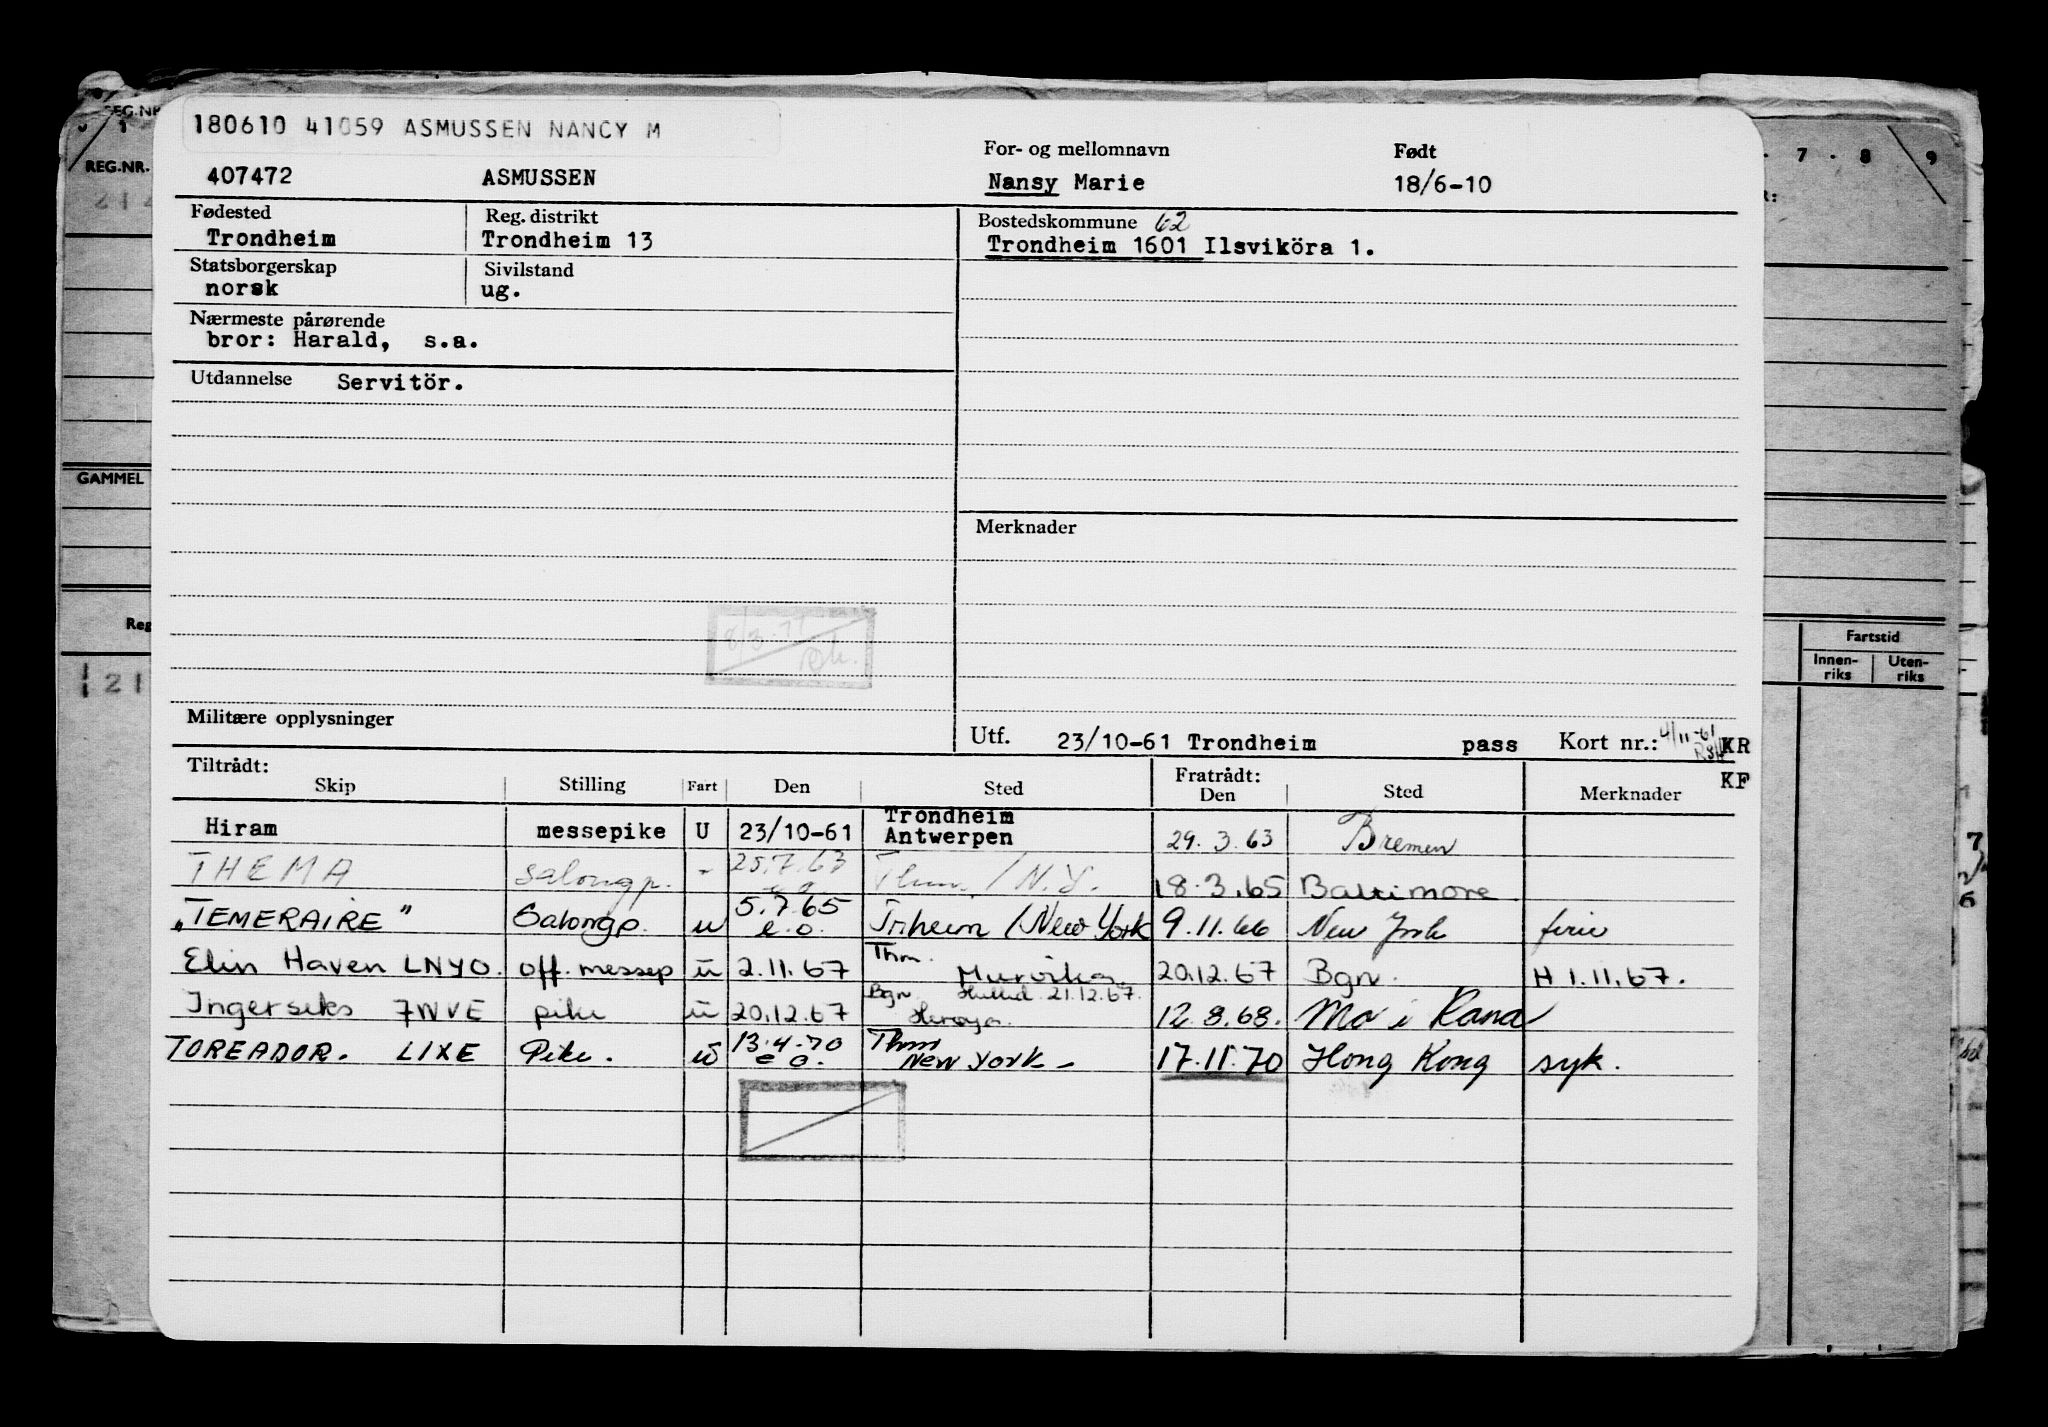 180610 41059 ASMUSSEN NANCY M
For- og mellomnavn Født
407472 ASMUSSEN Nansy Marie 18/6-10
Fødested Reg. distrikt Bostedskommune 62
Trondheim Trondheim 13 Trondheim 1601 Ilsviköra 1.
Statsborgerskap Sivilstand
norsk ug.
Nærmeste pårørende
bror: Harald, s.a.
Utdannelse Servitör.
Merknader
8/3-71
Militære opplysninger
Utf. 23/10-61 Trondheim pass Kort nr.: 4/11-61 KR
KF
Tiltrådt: Fratrådt:
Skip Stilling Fart Den Sted Den Sted Merknader
Hiram messepike U 23/10-61 Trondheim Antwerpen 29.3.63 Bremen
THEMA Salongp. - 25.7.63 Thm. / N.Y. 18.3.65 Baltimore
"TEMERAIRE" Salongp. u 5.7.65 e.o. Trheim / New York 9.11.66 New York ferie
Elin Haven LNYO. off. messep u 2.11.67 Thm. Murvika 20.12.67 Bgn. H 1.11.67.
Ingerseks JWVE pike u 20.12.67 Bgn. 21.12.67. Herøya. 12.8.68. Mo i Rana
TOREADOR. LIXE Pike. u 13.4.70 e o. Thm New York - 17.11.70 Hong Kong syk.
REG.NR.
REG.NR.
GAMMEL
Reg
21
7 . 8 9
Fartstid
Innen-riks Uten-riks
7
6